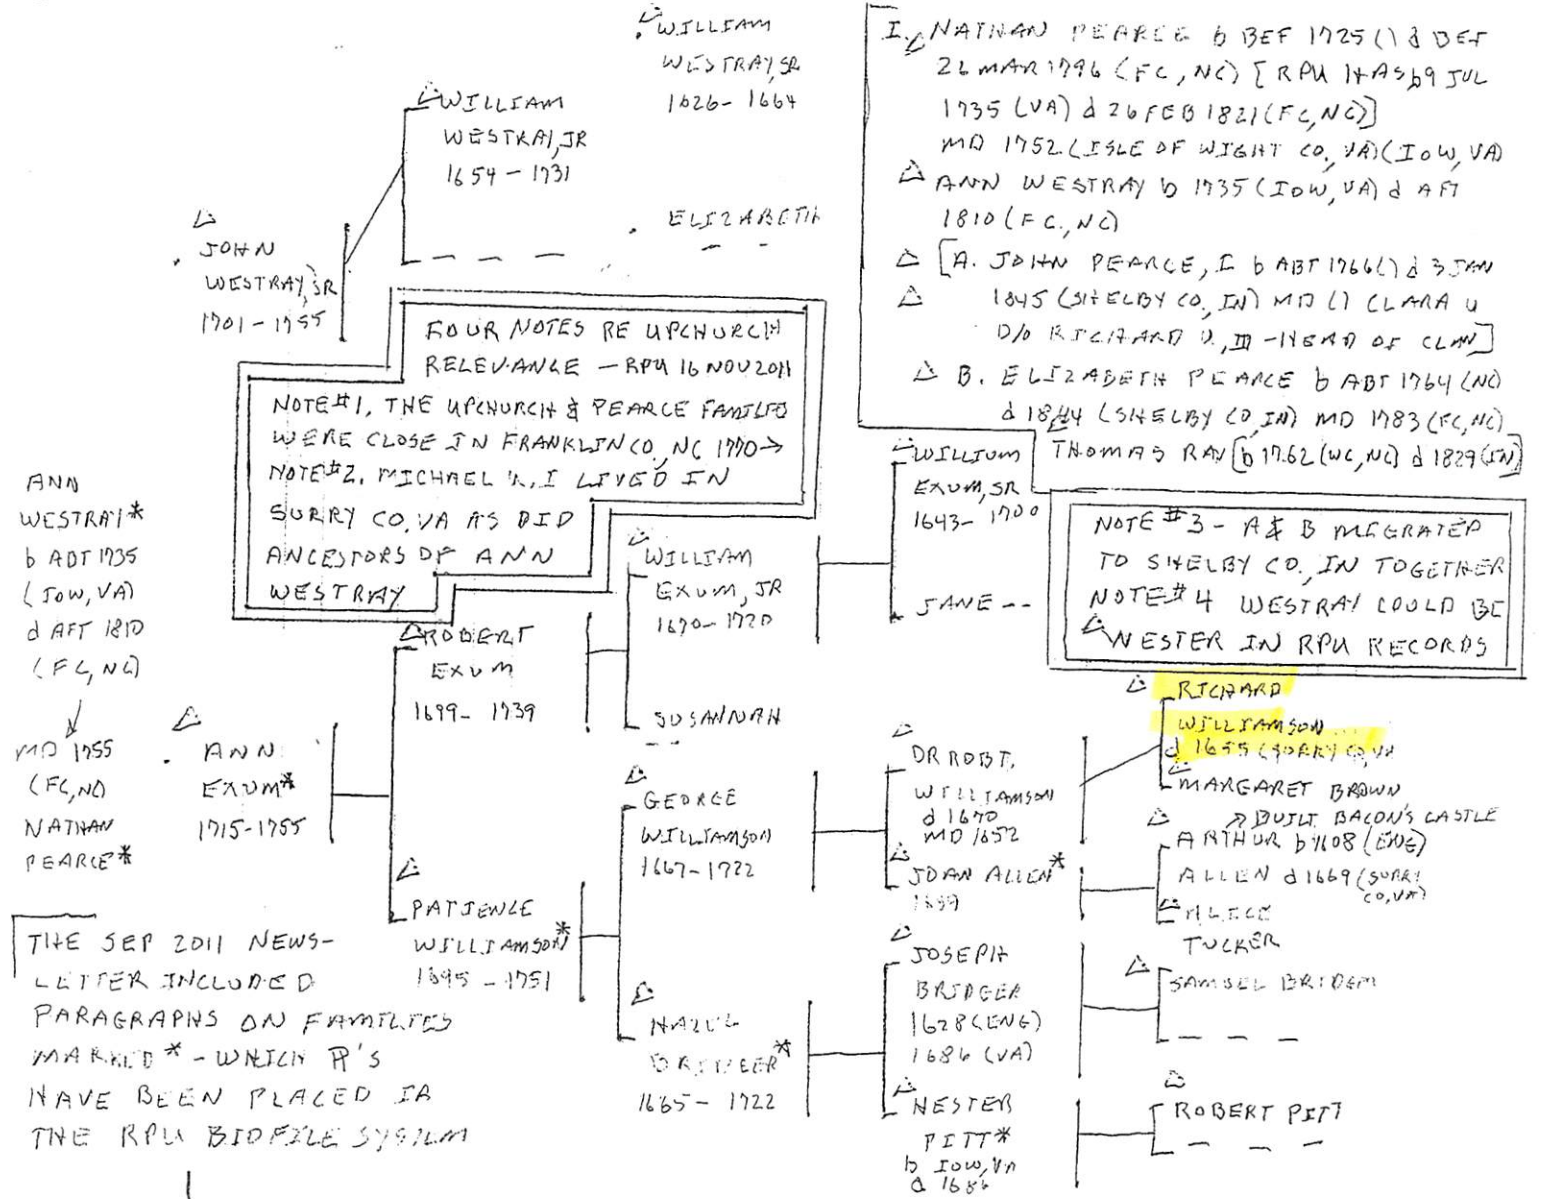 WILLIAM
WESTRAY, SR
1626 - 1664
WILLIAM
WESTRAY, JR
1654 - 1731
ELIZABETH
JOHN
WESTRAY, SR
1701 - 1755
I. NATHAN PEARCE b BEF 1725 () d BEF
26 MAR 1796 (FC, NC) [RPU HAS b 9 JUL
1735 (VA) d 26 FEB 1821 (FC, NC)]
MD 1752 (ISLE OF WIGHT CO., VA) (IOW, VA)
ANN WESTRAY b 1735 (IOW, VA) d AFT
1810 (FC., NC)
[A. JOHN PEARCE, I b ABT 1766 () d 3 JAN
1845 (SHELBY CO, IN) MD () CLARA U
D/O RICHARD U., III - HEAD OF CLAN]
B. ELIZABETH PEARCE b ABT 1764 (NC)
d 1844 (SHELBY CO, IN) MD 1783 (FC, NC)
THOMAS RAY [b 1762 (WC, NC) d 1829 (IN)]
FOUR NOTES RE UPCHURCH
RELEVANCE - RPU 16 NOV 2011
NOTE #1, THE UPCHURCH & PEARCE FAMILES
WERE CLOSE IN FRANKLIN CO., NC 1770 →
NOTE #2. MICHAEL U., I LIVED IN
SURRY CO, VA AS DID
ANCESTORS OF ANN
WESTRAY
NOTE #3 - A & B MIGRATED
TO SHELBY CO., IN TOGETHER
NOTE #4 WESTRAY COULD BE
WESTER IN RPU RECORDS
ANN
WESTRAY*
b ABT 1735
(IOW, VA)
d AFT 1810
(FC, NC)
MD 1755
(FC, NC)
NATHAN
PEARCE*
ANN
EXUM*
1715-1755
ROBERT
EXUM
1699 - 1739
PATIENCE
WILLIAMSON*
1695 - 1751
WILLIAM
EXUM, JR
1670 - 1720
SUSANNAH
WILLIUM
EXUM, SR
1643 - 1700
JANE --
GEORGE
WILLIAMSON
1667 - 1722
BRIDGER*
1665 - 1722
DR ROBT.
WILLIAMSON
d 1670
MD 1652
JOAN ALLEN*
JOSEPH
BRIDGER
1628 (ENG)
1686 (VA)
HESTER
PITT*
b IOW, VA
d 1686
RICHARD
WILLIAMSON
d 1655 (SURRY CO, VA
MARGARET BROWN
→ BUILT BACON'S CASTLE
ARTHUR b 1608 (ENG)
ALLEN d 1669 (SURRY
CO, VA)
ALICE
TUCKER
SAMUEL BRIDGER
ROBERT PITT
THE SEP 2011 NEWS-
LETTER INCLUDED
PARAGRAPHS ON FAMILIES
MARKED * - WHICH P'S
HAVE BEEN PLACED IN
THE RPU BIOFILE SYSTEM